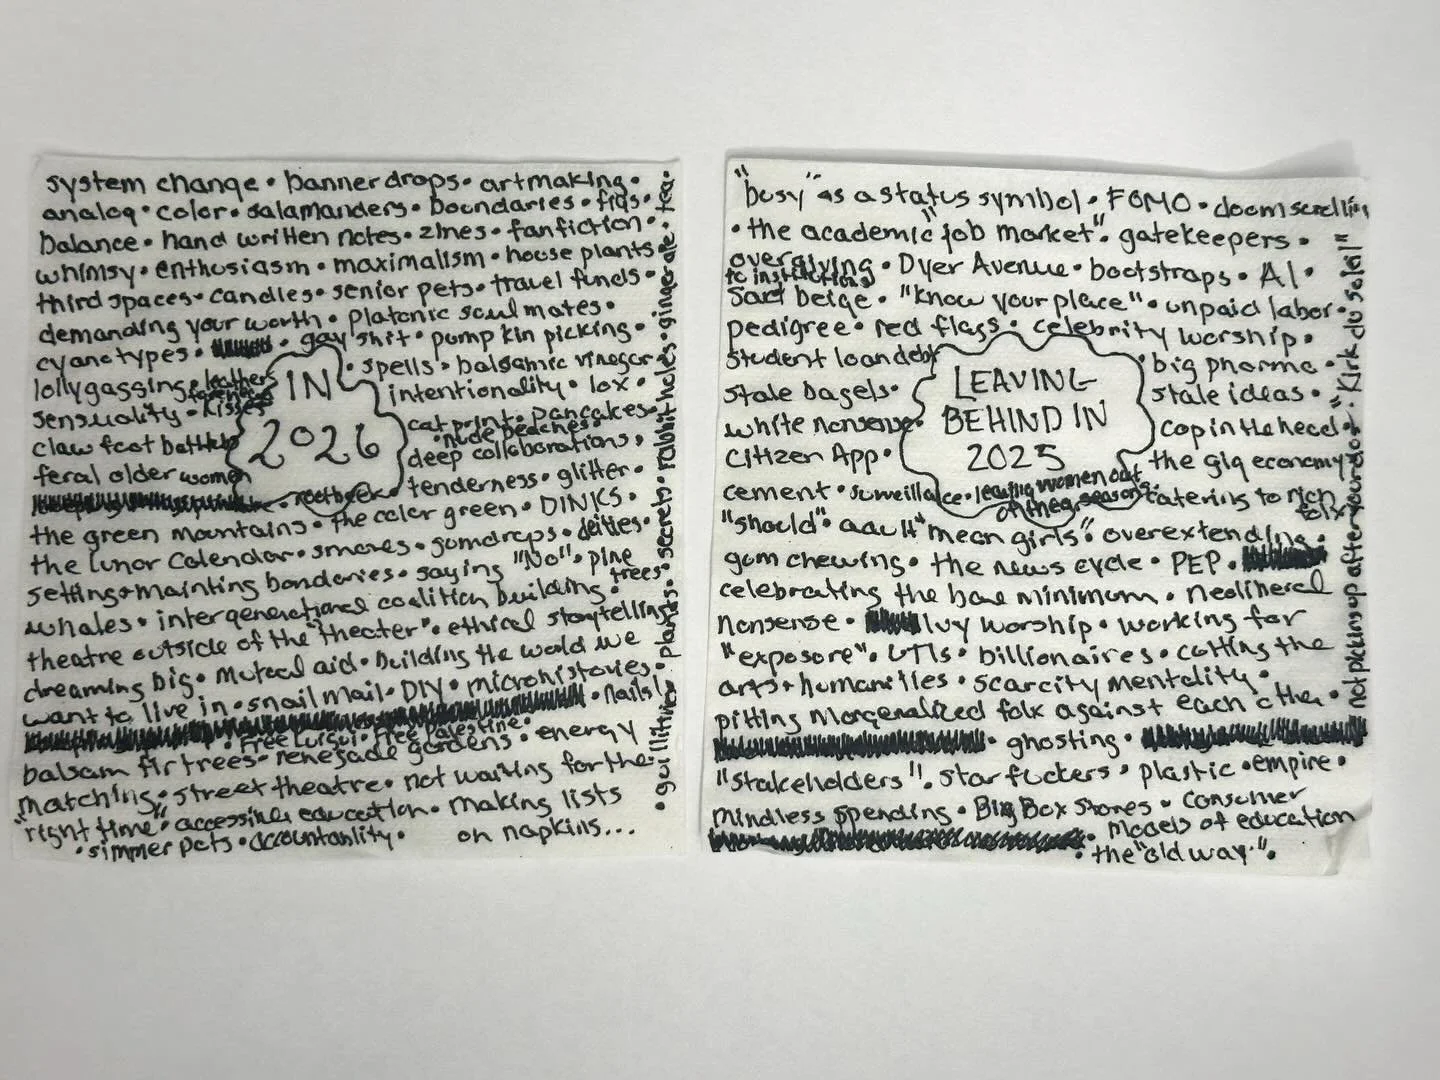 system change • banner drops • artmaking •
analog • color • salamanders • boundaries • figs •
balance • hand written notes • zines • fanfiction •
whimsy • enthusiasm • maximalism • house plants
third spaces • candles • senior pets • travel funds •
demanding your worth • platonic soul mates •
cyanotypes • • gay shit • pumpkin picking •
lollygagging • leather
• spells • balsamic vinegar
sensuality • kisses
intentionality • lox •
IN
2026
claw foot
cat print • pancakes •
• nude beaches •
deep collaborations •
feral older women
• rootbeer • tenderness • glitter •
the green mountains • the color green • DINKS •
the lunar calendar • smores • gumdrops • deities •
setting + mainting bondaries • saying "No" • pine
trees •
whales • intergenerational coalition building •
theatre outside of the "theater" • ethical storytelling
dreaming big • mutual aid • building the world we
want to live in • snail mail • DIY • microhistories •
• nails!
• Free Luigi • Free Palestine •
balsam fir trees • renegade gardens • energy
matching • street theatre • not waiting for the
"right time" • accessible education • making lists
• simmer pots • accountability • on napkins...
• guillitine • plants • secrets • rabbit holes • gingerale • tea •
"busy" as a status symbol • FOMO • doomscrollin
• the academic "job market" • gatekeepers •
overgiving • Dyer Avenue • bootstraps • AI •
to institutions
sad beige • "know your place" • unpaid labor •
pedigree • red flags • celebrity worship •
student loan debt
• big pharma •
stale bagels •
stale ideas •
LEAVING
BEHIND IN
2025
white nonsense
cop in the head •
Citizen App •
the gig economy
cement • surveillance • leaving women out
of the
catering to rich
folx
"should" • adult "mean girls" • overextending •
gum chewing • the news cycle • PEP •
celebrating the bare minimum • neoliberal
nonsense • Ivy worship • working for
"exposore" • UTIs • billionaires • cutting the
arts + humanities • scarcity mentality •
pitting margenalized folk against each other •
• ghosting •
"stakeholders" • starfuckers • plastic • empire •
mindless spending • Big Box Stores • consumer
• models of education
• the "old way" •
not picking up after your dog • "Kirk du Soleil"